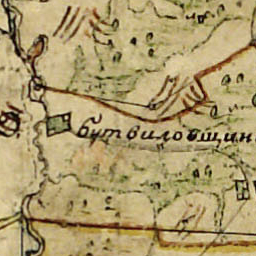 бутвиловщин